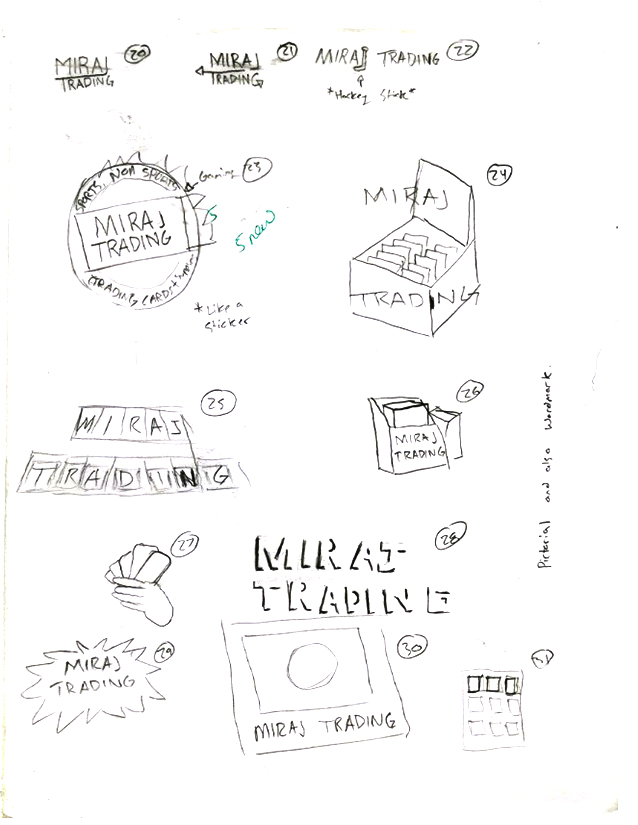 MIRAJ
TRADING
20
MIRAJ
TRADING
21
MIRAJ TRADING
22
*Hockey Stick*
SPORTS, NON SPORTS
Gaming
23
MIRAJ
TRADING
TRADING CARDS +
*Like a
Sticker
MIRAJ
TRADING
24
MIRAJ
TRADING
25
MIRAJ
TRADING
26
Pictorial and also Wordmark.
27
MIRAJ
TRADING
28
MIRAJ
TRADING
29
MIRAJ TRADING
30
31